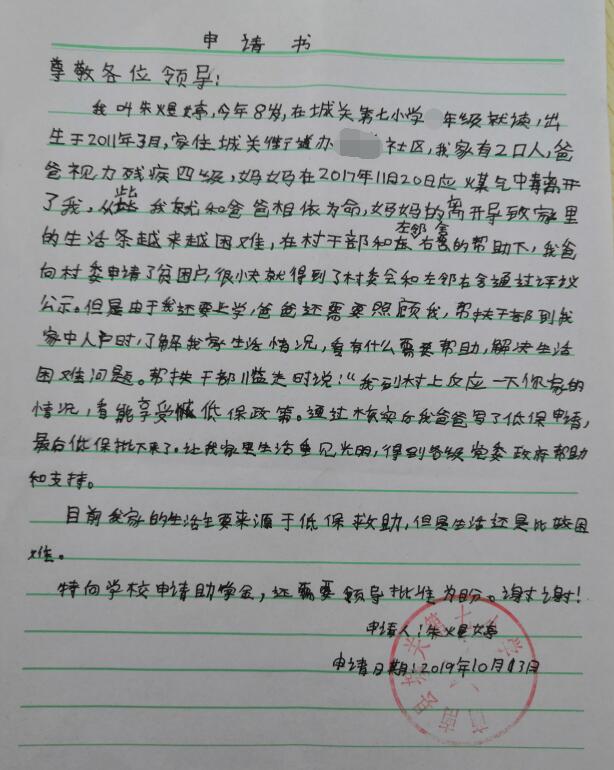 申请书
尊敬各位领导：
我叫朱煜婷，今年8岁，在城关第七小学 年级就读，出
生于2011年3月，家住城关街道办 社区，我家有2口人，爸
爸视力残疾四级，妈妈在2017年11月20日应煤气中毒离开
了我，从些我就和爸爸相依为命，妈妈的离开导致家里
的生活条越来越困难，在村干部和左邻右舍的帮助下，我爸
向村委申请了贫困户，很快就得到了村委会和左邻右舍通过评议
公示。但是由于我还要上学，爸爸还需要照顾我，帮扶干部到我
家中入户时，了解我家生活情况，看有什么需要帮助，解决生活
困难问题。帮扶干部临走时说：“我到村上反应一下你家的
情况，看能享受低保政策。通过核实后我爸爸写了低保申请，
最后低保批下来了。让我家里生活重见光明，得到各级党委政府帮助
和支持。
目前我家的生活主要来源于低保救助，但是生活还是比较困
难。
特向学校申请助学金，还需要领导批准为盼。谢谢！
申请人：朱煜婷
申请日期：2019年10月13日